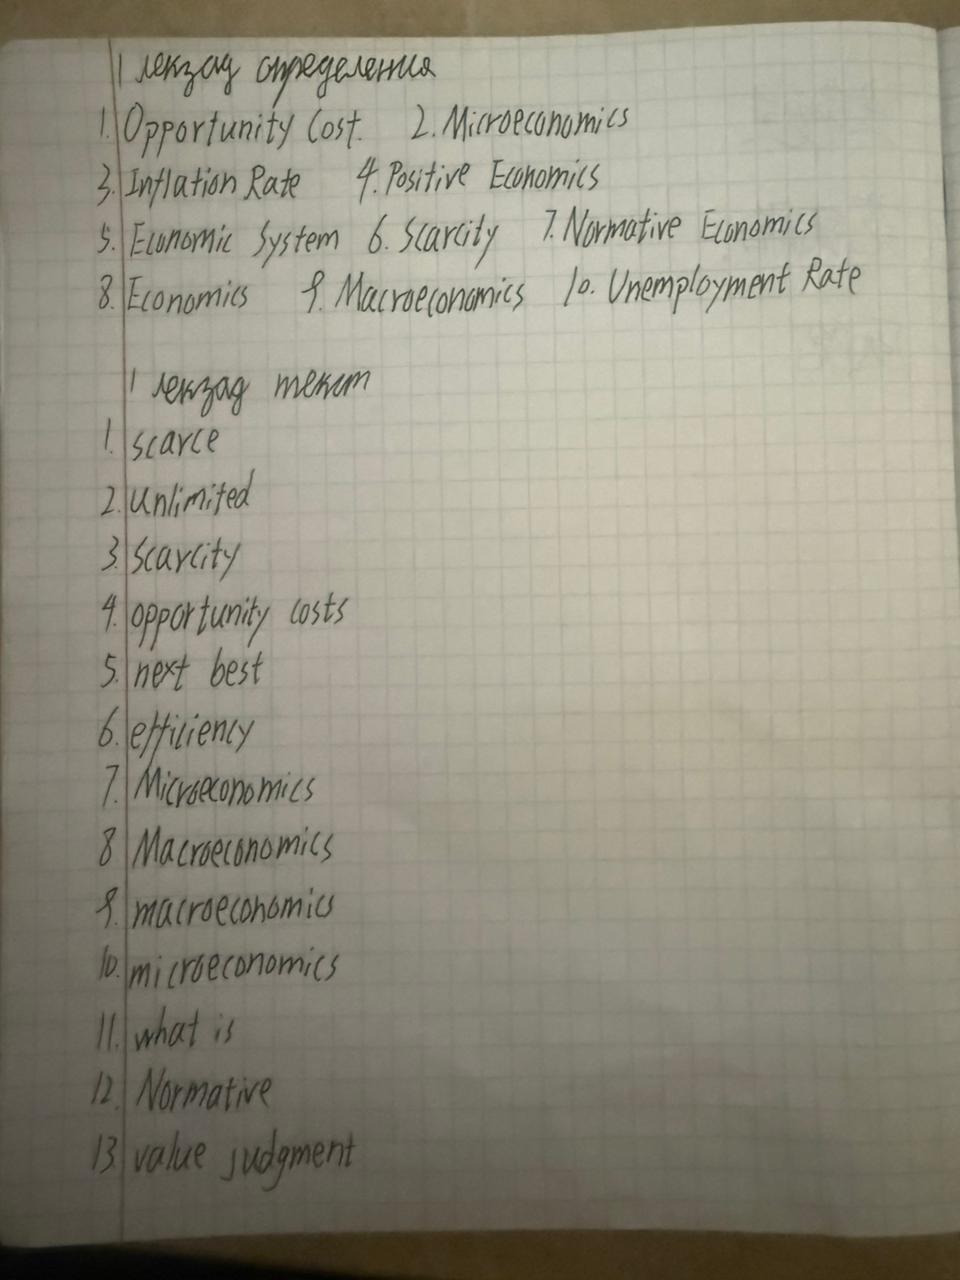 1 лекзад определения
1. Opportunity Cost. 2. Microeconomics
3. Inflation Rate 4. Positive Economics
5. Economic System 6. Scarcity 7. Normative Economics
8. Economics 9. Macroeconomics 10. Unemployment Rate
1 лекзад текст
1. scarce
2. unlimited
3. Scarcity
4. opportunity costs
5. next best
6. efficiency
7. Microeconomics
8 Macroeconomics
9. macroeconomics
10. microeconomics
11. what is
12. Normative
13. value judgment